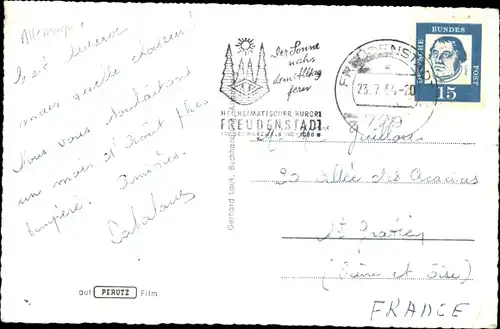 Allemagne!
C'est superbe
mais quelle chaleur!
Nous vous souhaitons
un mois d'Août plus
tempéré. Amitiés.
Gerhard Lauk, Buchhandlung
auf PERUTZ Film
Der Sonne
nah
dem Alltag
fern
HEILKLIMATISCHER KURORT
FREUDENSTADT
SCHWARZWALD
FREUDENSTADT
23.7.64-20
729
DEUTSCHE BUNDESPOST
15
Guillou
20 allée des Acacias
St Gratien
(Seine et Oise)
FRANCE